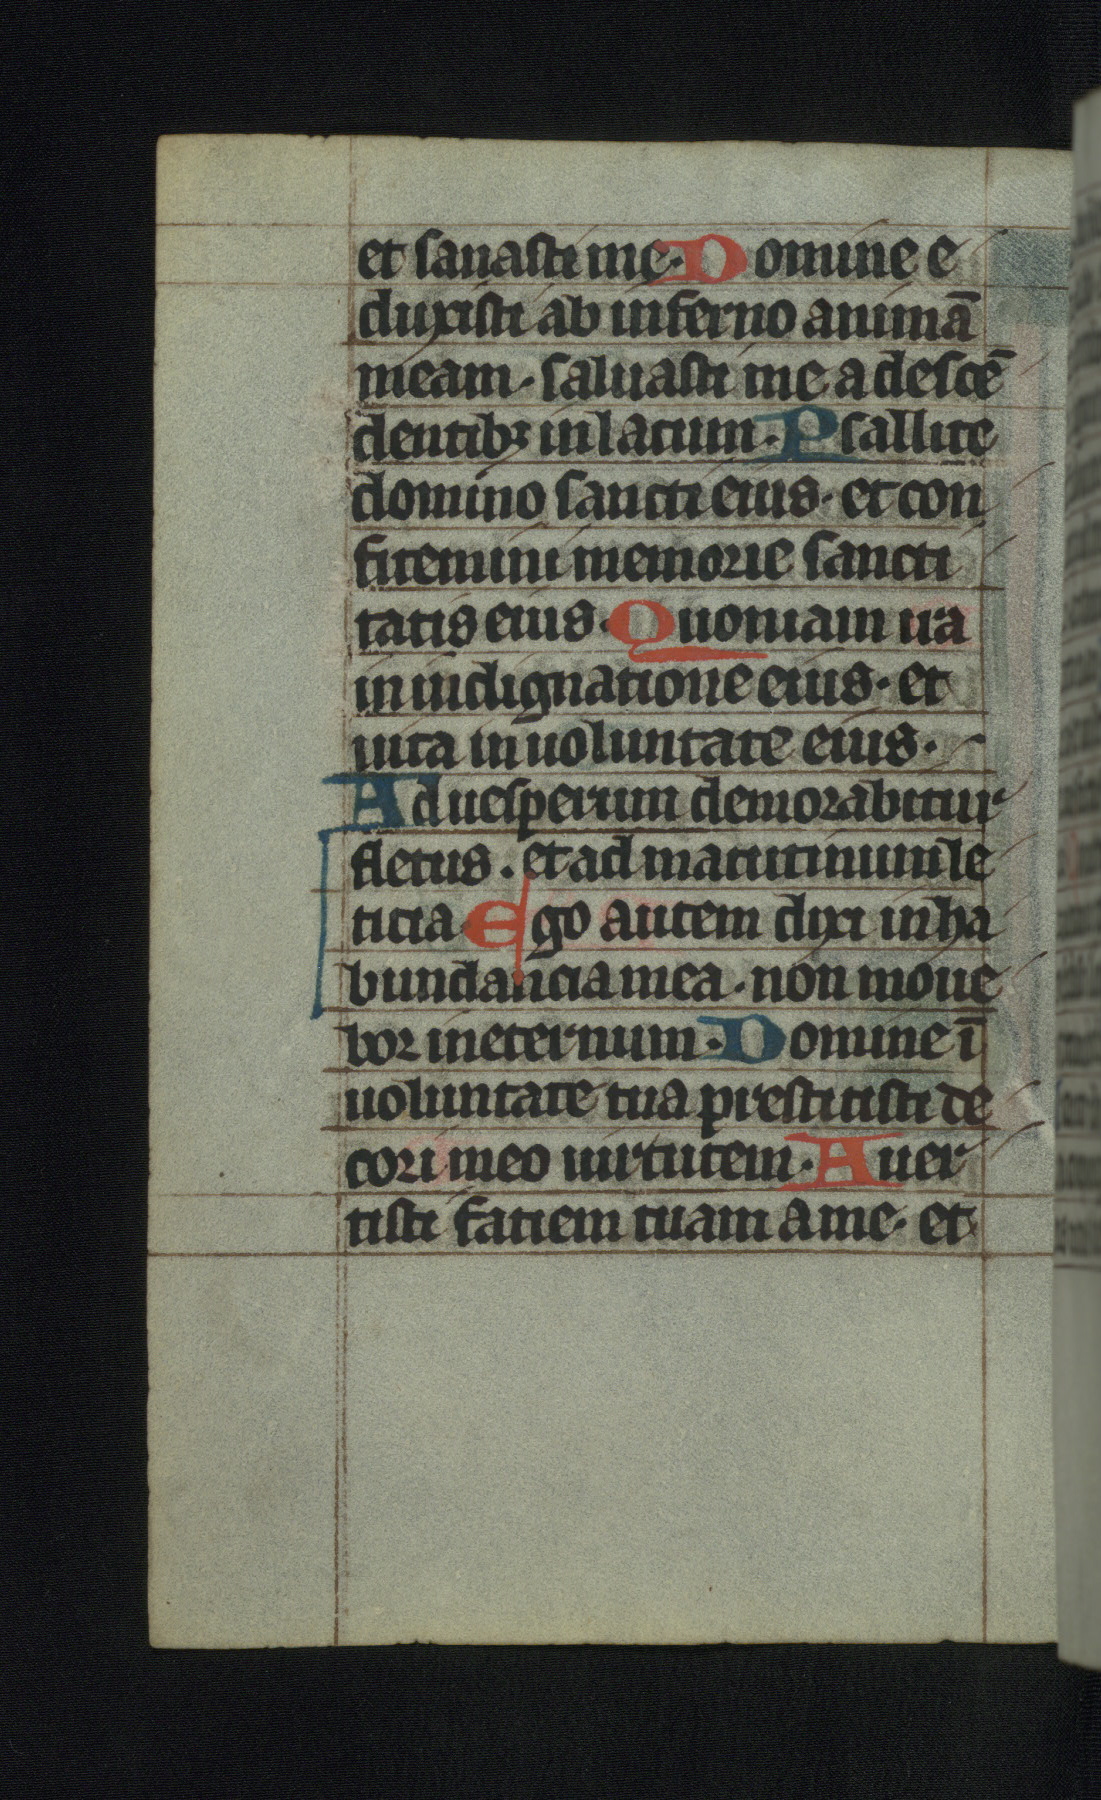 et sanasti me. Domine e
duxisti ab inferno animā
meam. saluasti me a descē
dentibꝫ in lacum. Psallite
domino sancti eius. et con
fitemini memorie sancti
tatis eius. Quoniam ira
in indignatione eius. et
uita in uoluntate eius.
Ad uesperum demorabitur
fletus. et ad matutinum le
ticia Ego autem dixi in ha
bundancia mea. non moue
bor in eternum. Domine ī
uoluntate tua prestitisti de
cori meo uirtutem. Auer
tisti faciem tuam a me. et